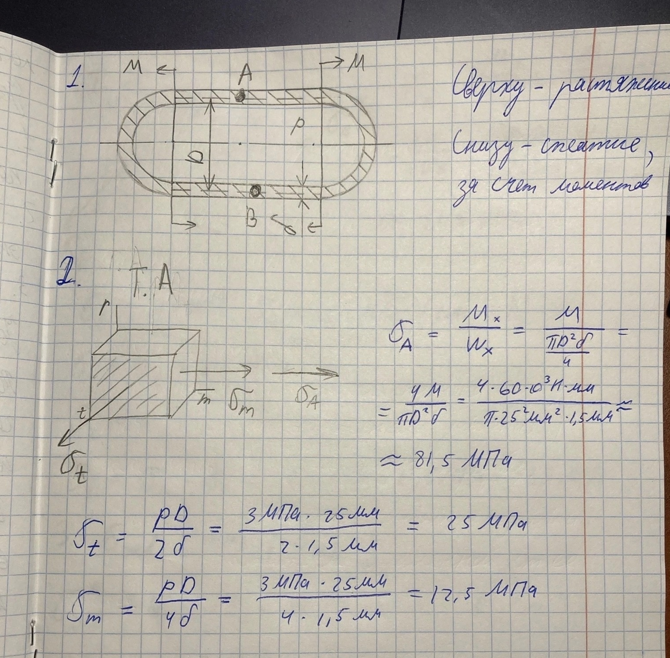 1.
M M
A
D
p
B
δ
Сверху - растяжени
Снизу - сжатие,
за счет моментов
2.
Т. А
r
t
m
σt
σm
σA
σA = Mx / Wx = M / (πD²δ / 4) =
= 4M / πD²δ = 4·60·10³Н·мм / π·25²мм²·1,5мм ≈
≈ 81,5 МПа
σt = pD / 2δ = 3МПа · 25мм / 2·1,5мм = 25 МПа
σm = pD / 4δ = 3МПа · 25мм / 4·1,5мм = 12,5 МПа